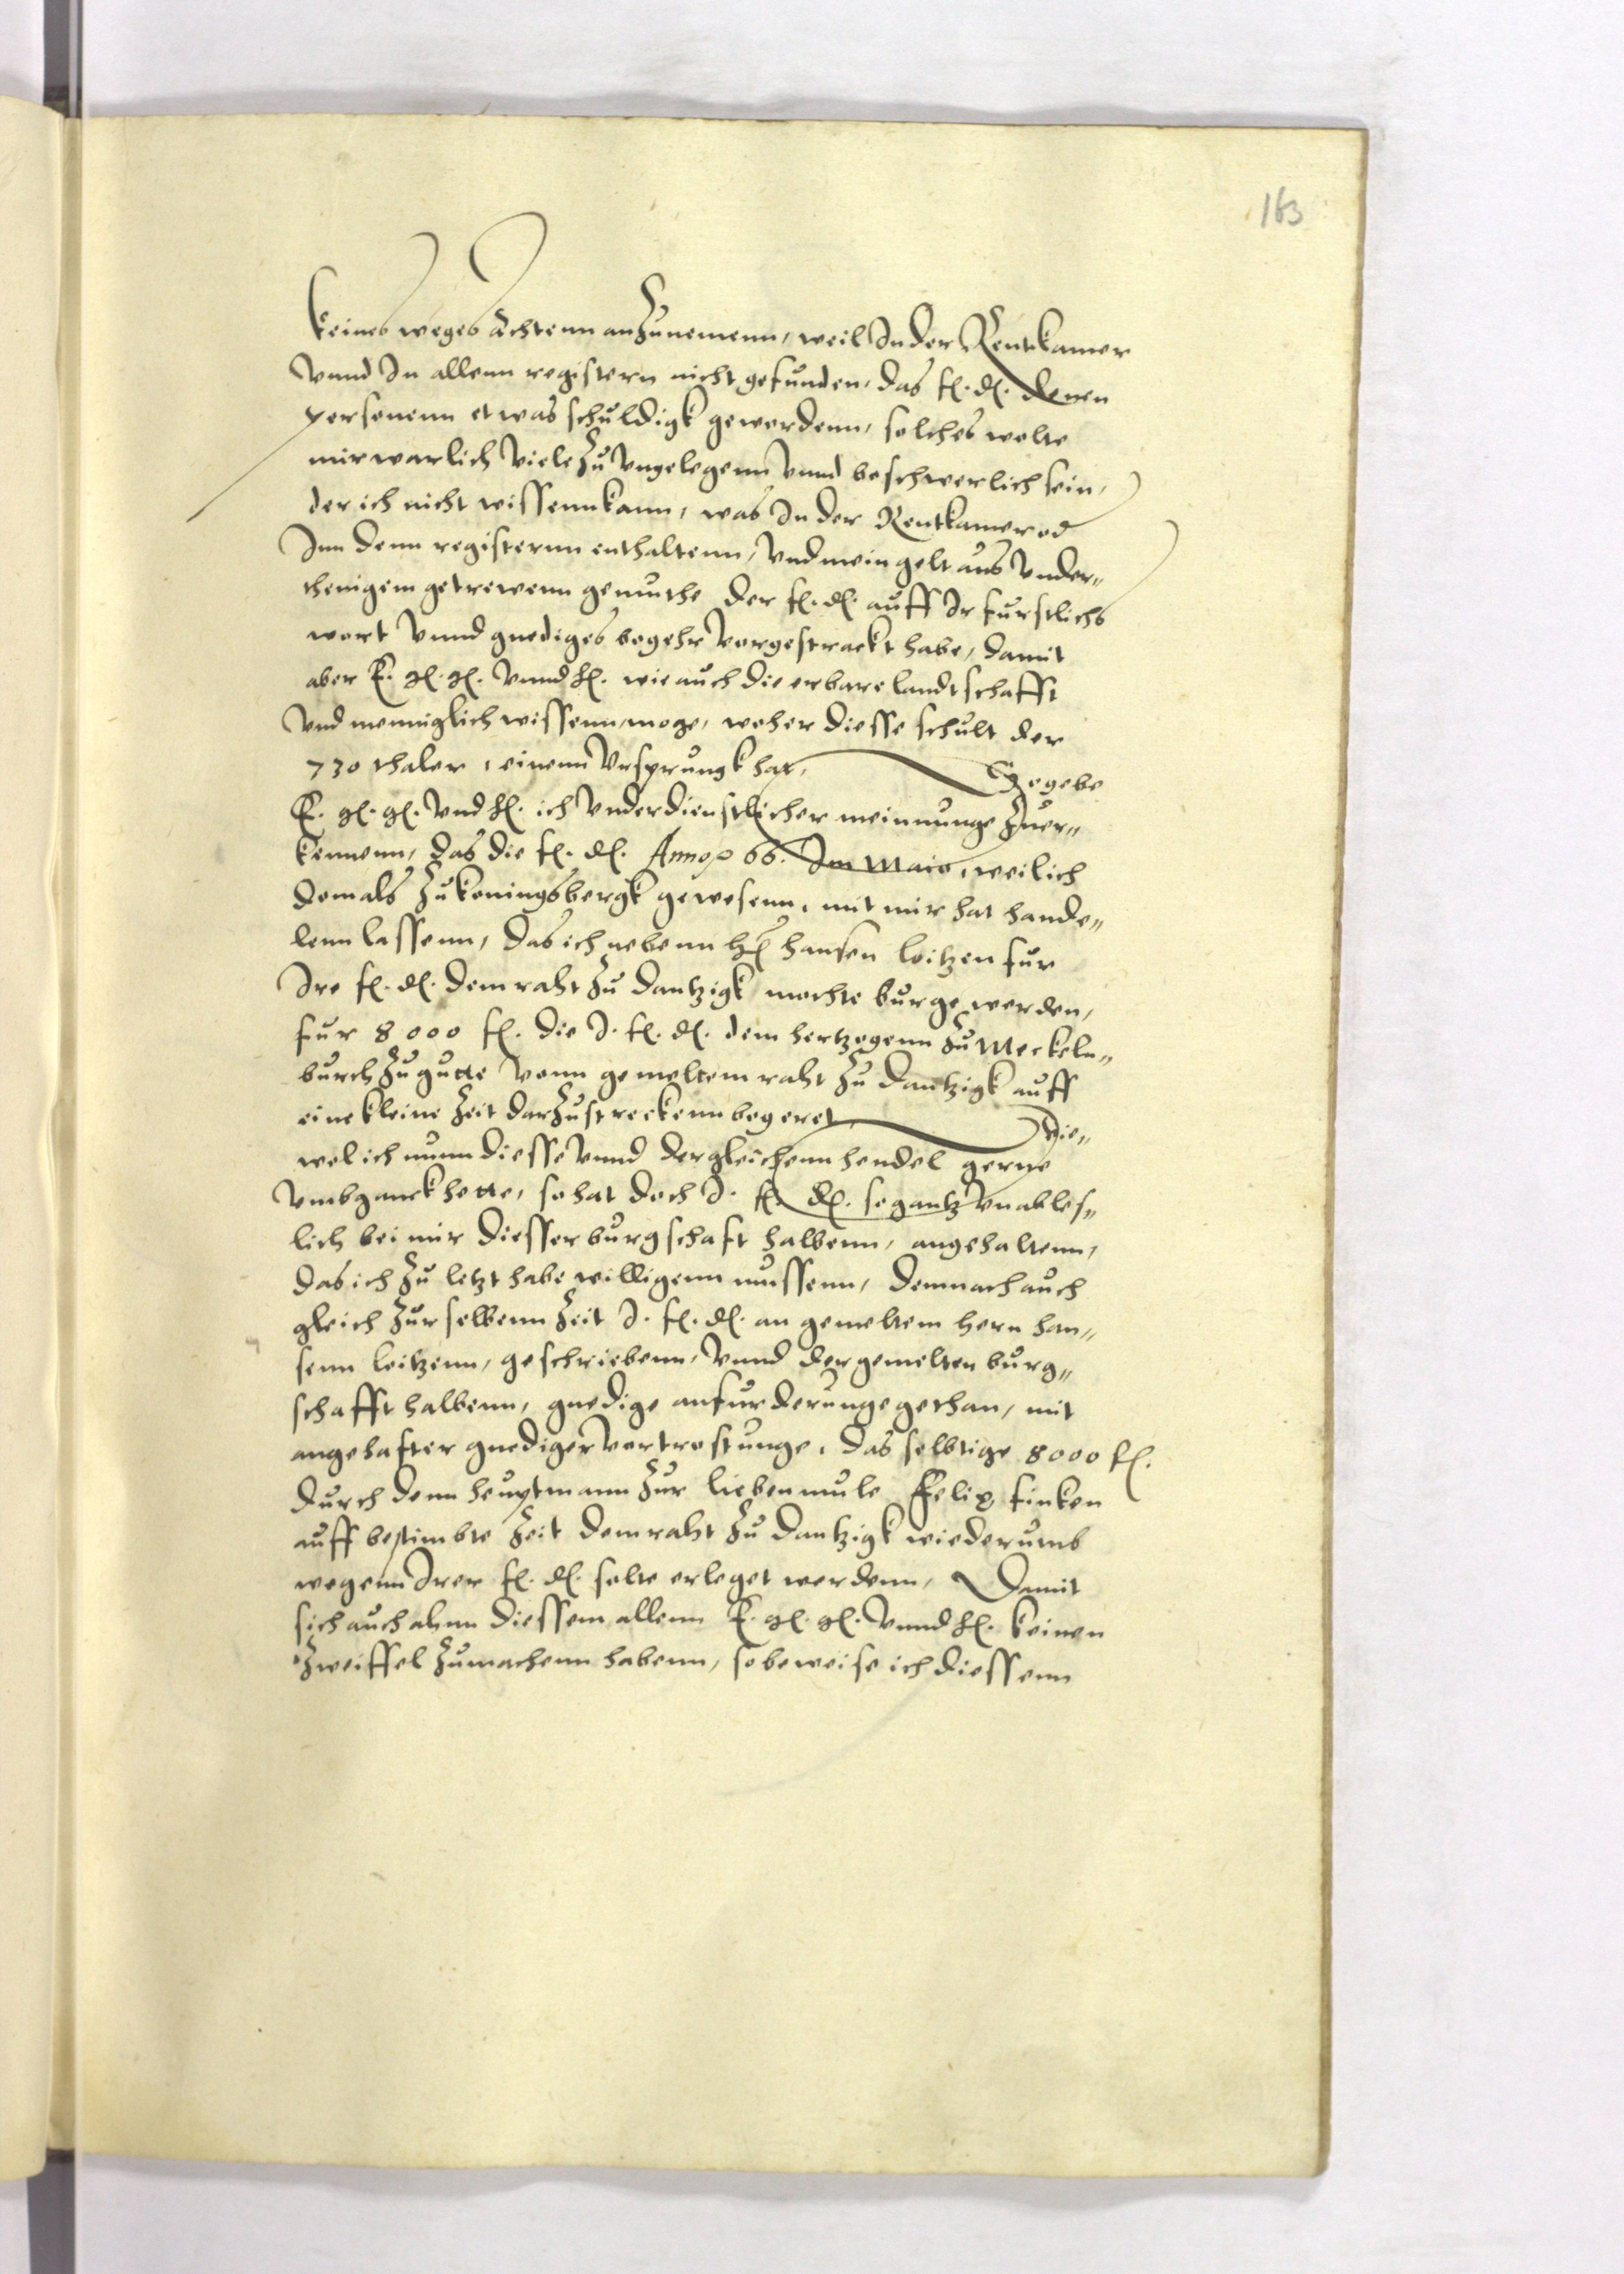 163
keines weges Achtenn anzunemenn, weil In der Rentkamer
vnnd In allenn registern nicht gefunden, das f. d. denen
personenn etwas schuldigk gewordenn, solches wolte
mir warlich viele zu vngelegenn vnnd beschwerlich sein,
der ich nicht wissenn kann, was In der Rentkamer od
Inn denn registernn enthaltenn, vnd mein gelt aus vnder„
thenigem getrewenn gemuthe der f. d. auff Ir furstlichs
wort vnnd gnediges begehr vorgestrackt habe, damit
aber E. g. g. vnnd h. wie auch die erbare landtschafft
vnd menniglich wissenn moge, woher diesse schult der
730 thaler, einenn vrsprungk hat, So gebe
E. g. g. vnd h. ich vnderdienstlicher meinnunge zuer„
kennenn, das die f. d. Anno 66. Im Maio, weil ich
domals zu koningsbergk gewesenn, mit mir hat hande„
lenn lassenn, das ich nebenn h hansen loitzen fur
Ire f. d. dem raht zu dantzigk mochte burge werden,
fur 8000 f. die I. f. d. dem hertzogenn zu Meckeln„
burch zu gutte vonn gemeltem raht zu dantzigk auff
eine kleine zeit darzustreckenn begeret, Die„
wol ich nunn diesse vnnd dergleichenn hendel gerne
vmbganck hette, so hat doch I. f. d. so gantz vnables„
lich bei mir diesser burgschaft halbenn, angehaltenn,
das ich zu letzt habe willigenn mussenn, demnach auch
gleich zur selbenn zeit I. f. d. an gemeltem hern han„
senn loitzenn, geschriebenn, vnnd der gemelten burg„
schafft halbenn, gnedige anfurderunge gethan, mit
angehafter gnediger vertrostunge, das selbtige 8000 f.
durch denn heuptmann zur liebenmule Felix finken
auff bestimbte zeit dem raht zu dantzigk wiederumb
wegenn Irer f. d. solte erleget werdenn, Damit
sich auch ahnn diessem allenn E. g. g. vnnd h. keinen
zweiffel zumachenn habenn, so beweise ich diessenn